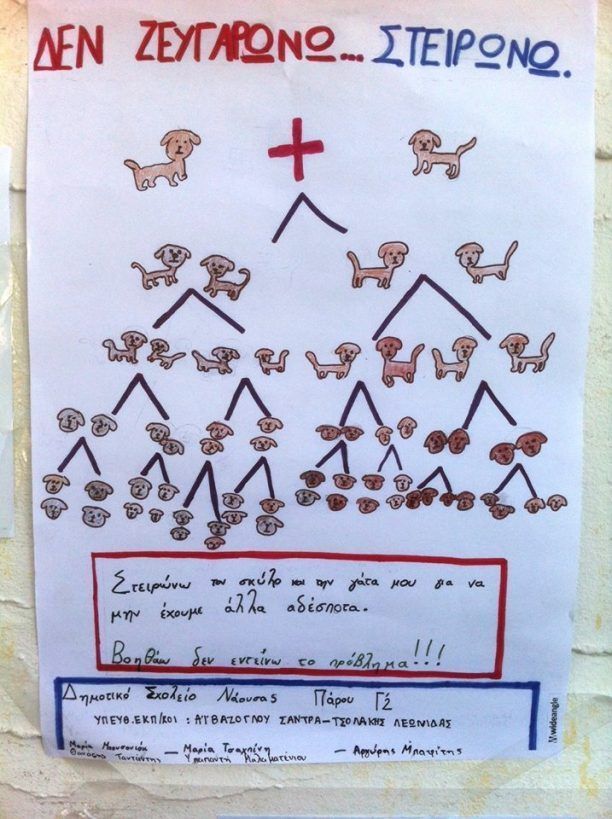 ΔΕΝ ΖΕΥΓΑΡΩΝΩ... ΣΤΕΙΡΩΝΩ.
Στειρώνω τον σκύλο και την γάτα μου για να
μην έχουμε άλλα αδέσποτα.
Βοηθάω δεν εντείνω το πρόβλημα!!!
Δημοτικό Σχολείο Νάουσας Πάρου Γ2
ΥΠΕΥΘ.ΕΚΠ/ΚΟΙ : ΑΪΒΑΖΟΓΛΟΥ ΣΑΝΤΡΑ-ΤΣΟΛΑΚΗΣ ΛΕΩΝΙΔΑΣ
Μαρία — Μαρία Τσαχπίνη — Αργύρης Μπαφίτης
Υπαπαντή Μαλαματένιου
wideangle